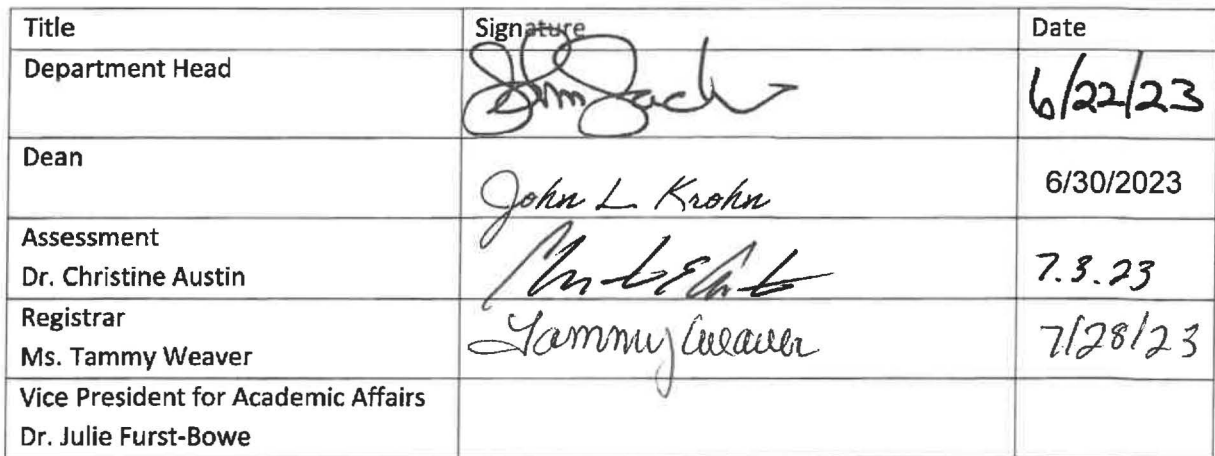 Title Signature Date
Department Head 6/22/23
Dean John L Krohn 6/30/2023
Assessment
Dr. Christine Austin 7.3.23
Registrar
Ms. Tammy Weaver Tammy Weaver 7/28/23
Vice President for Academic Affairs
Dr. Julie Furst-Bowe